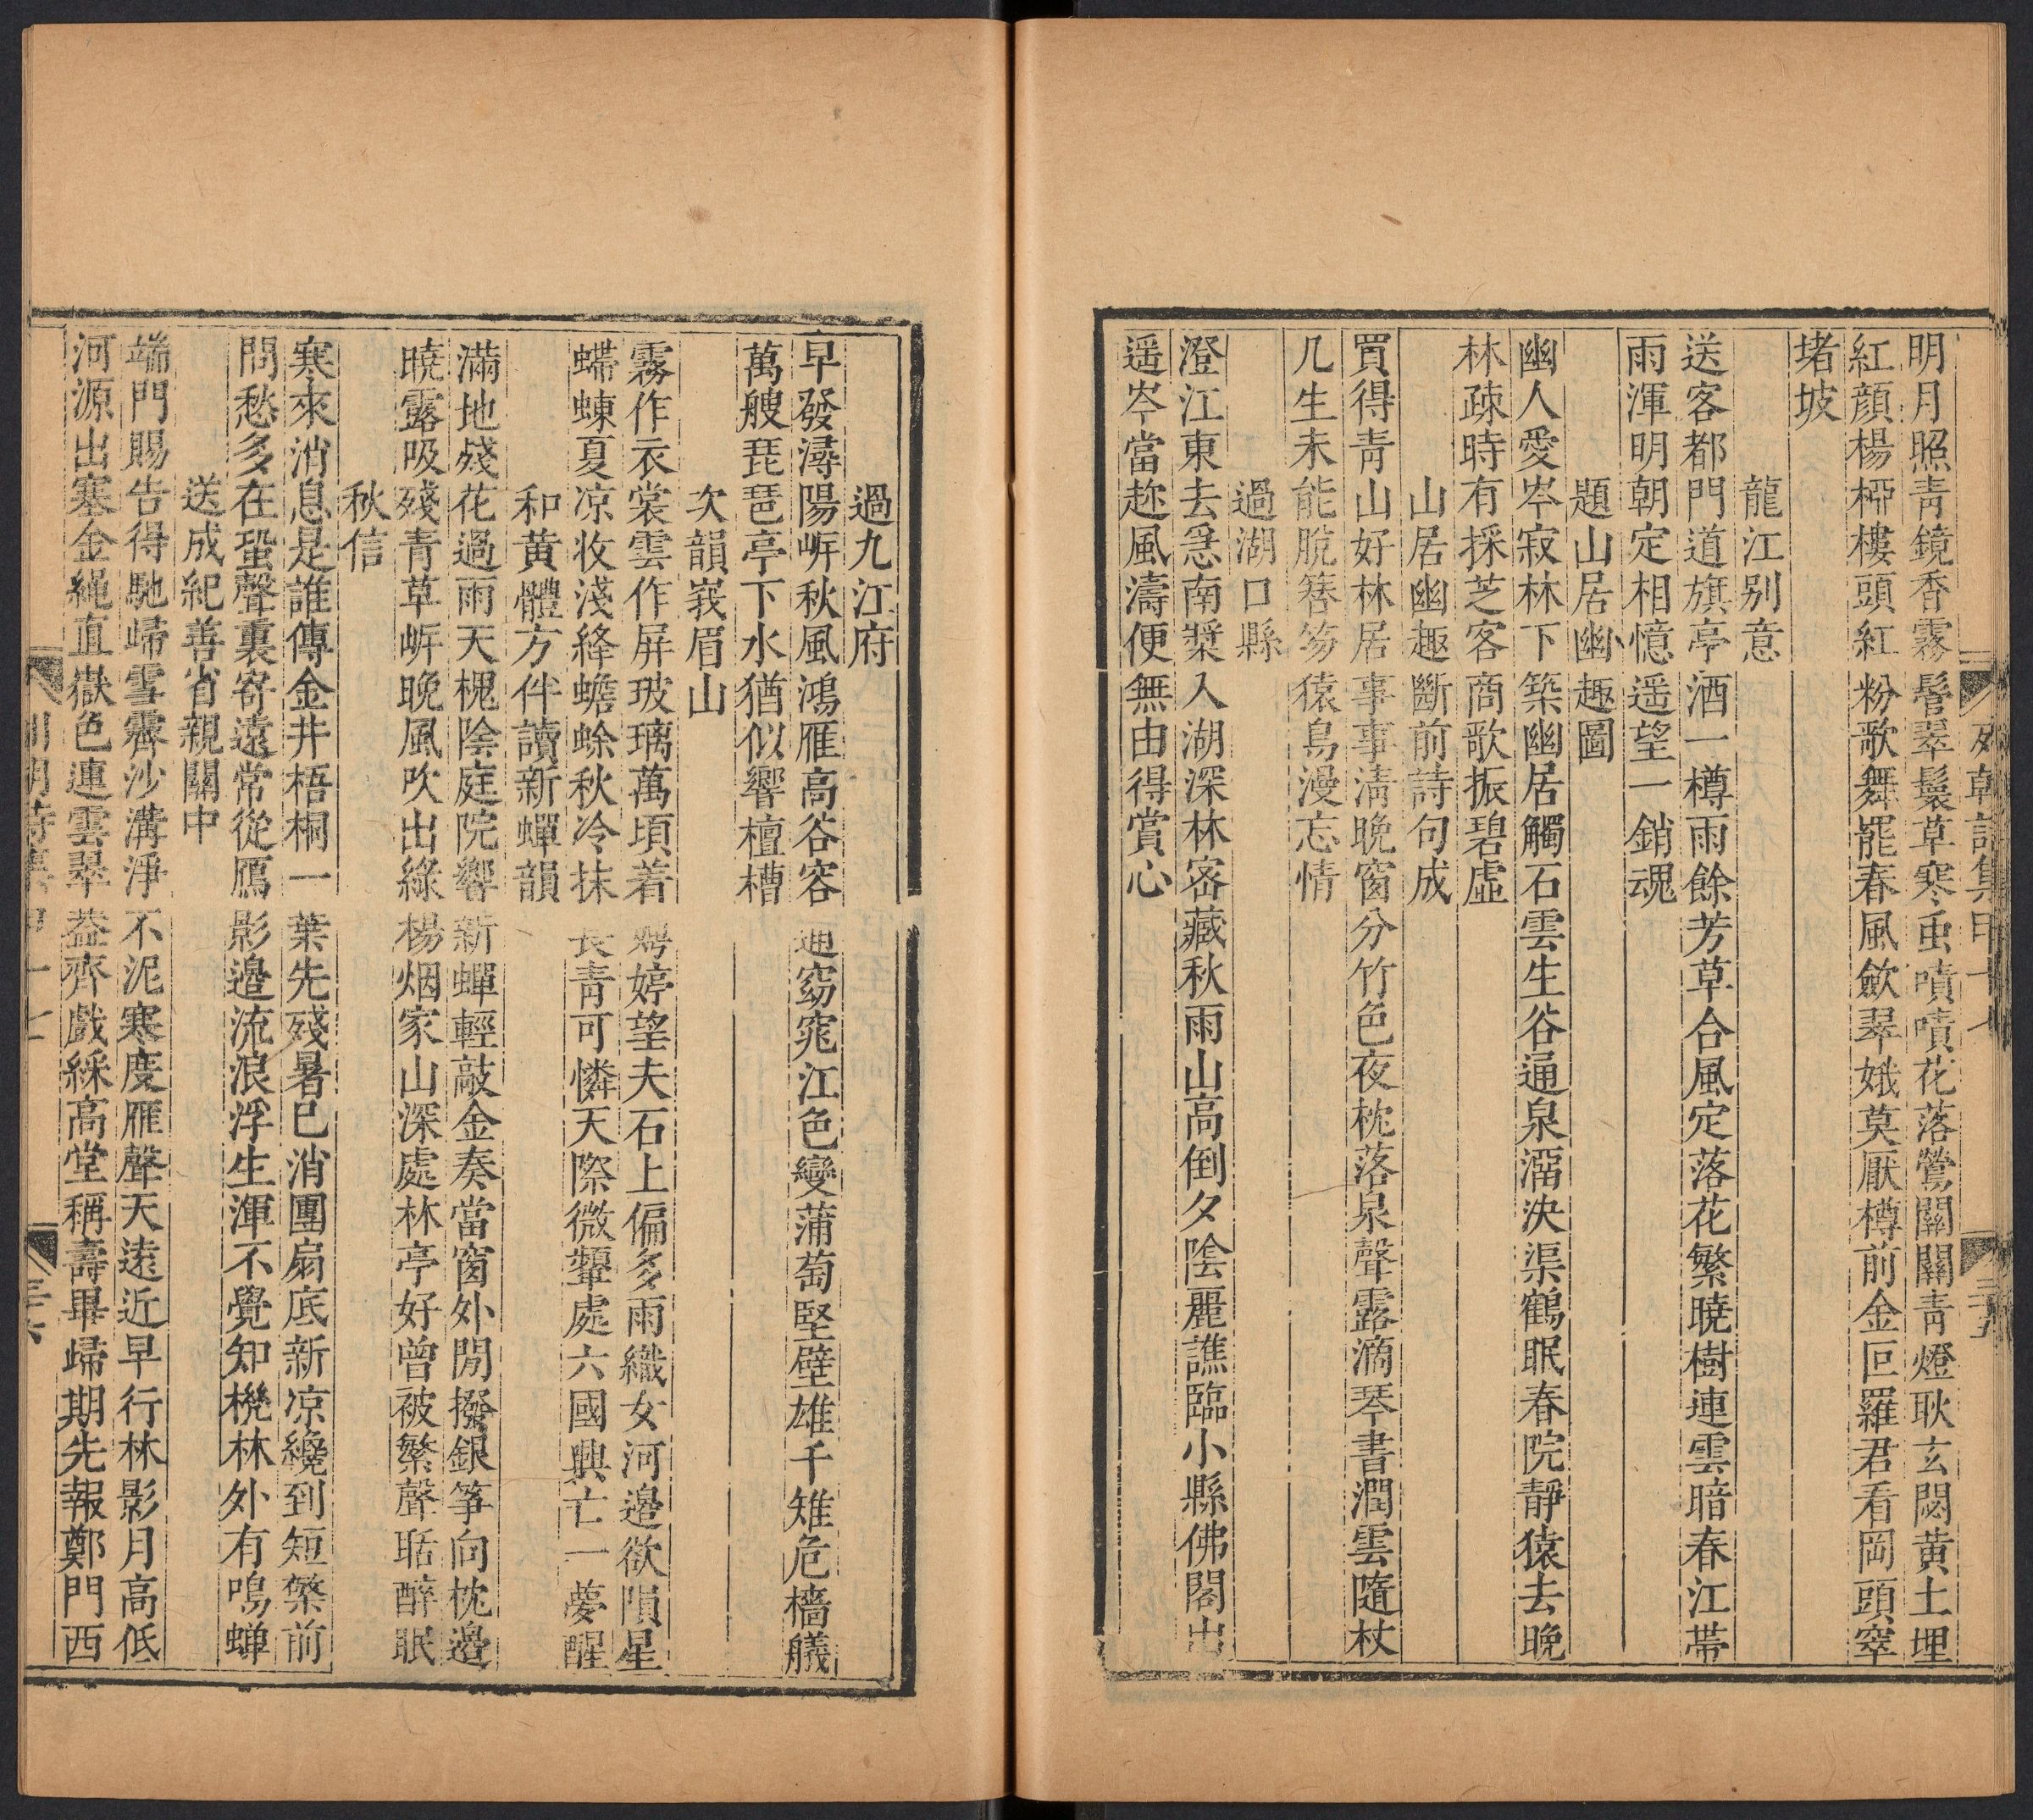 明月照青鏡香霧鬢翠鬟草寒虫嘖嘖花落鶯關關青燈耿玄閟黄土埋
紅顔楊柳樓頭紅粉歌舞罷春風歛翠娥莫厭樽前金叵羅君看岡頭窣
堵坡
龍江别意
送客都門道旗亭酒一樽雨餘芳草合風定落花繁曉樹連雲暗春江帯
雨渾明朝定相憶遥望一銷魂
題山居幽趣圖
幽人愛岑寂林下築幽居觸石雲生谷通泉溜決渠鶴眠春院靜猿去晚
林疎時有採芝客商歌振碧虛
山居幽趣斷前詩句成
買得青山好林居事事清晩窗分竹色夜枕落泉聲露滴琴書潤雲隨杖
几生未能脫簪笏猿鳥漫忘情
過湖口縣
澄江東去急南槳入湖深林密藏秋雨山高倒夕陰麗譙臨小縣佛閣出
遥岑當趂風濤便無由得賞心
過九江府
早發潯陽岍秋風鴻雁高谷容通窈窕江色變蒲萄堅壁雄千雉危檣艤
萬艘琵琶亭下水猶似響檀槽
次韻峩眉山
霧作衣裳雲作屏玻璃萬頃着娉婷望夫石上偏多雨織女河邉欲隕星
蝃蝀夏凉收淺絳蟾蜍秋冷抹長青可憐天際微顰處六國興亡一夢醒
和黄體方伴讀新蟬韻
滿地殘花過雨天槐陰庭院響新蟬輕敲金奏當窗外閒撥銀筝向枕邉
曉露吸殘青草岍晚風吹出綠楊烟家山深處林亭好曾被繁聲聒醉眠
秋信
寒來消息是誰傳金井梧桐一葉先殘暑已消團扇底新凉纔到短檠前
問愁多在蛩聲裏寄遠常從鴈影邉流浪浮生渾不覺知機林外有鳴蝉
送成紀善省親關中
端門賜告得馳歸雪霽沙溝淨不泥寒度雁聲天遠近早行林影月高低
河源出塞金繩直嶽色連雲翠葢齊戲綵高堂稱壽畢歸期先報鄭門西